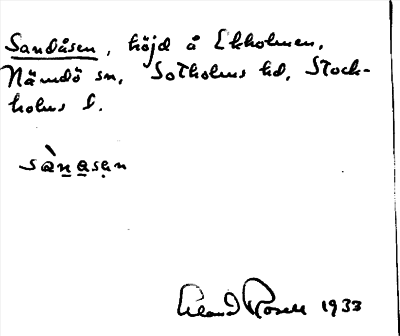 Sandåsen, höjd å Ekholmen,
Nämdö sn, Sotholms hd, Stock-
holms l.
sànạsạn
Erland Rosell 1933